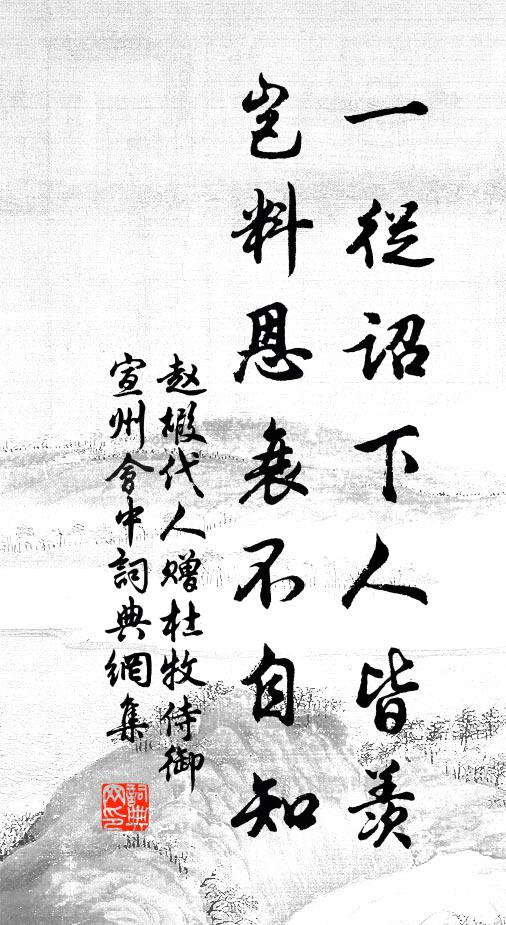 一從詔下人皆羨
豈料恩衰不自知
趙嘏代人贈杜牧侍御
宣州會中詞典網集